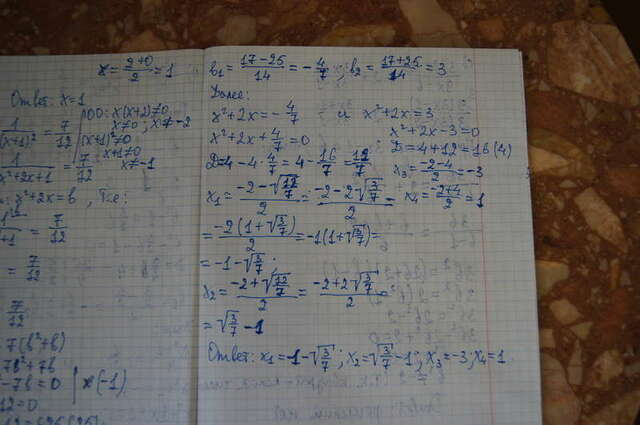 x = (2+0)/2 = 1
Ответ: x=1
7/12
ОО: x(x+2)≠0
x≠0; x≠-2
1/(x+1)² = 7/12
(x+1)²≠0
x+1≠0
x≠-1
1/(x²+2x+1) = 7/12
x²+2x=в, где:
= 7/12
= 7/12
7/12
7(в²+в)
7в²+7в
-7в=0 | x(-1)
12=0
в₁ = (17-25)/14 = -4/7; в₂ = (17+25)/14 = 3
Далее:
x²+2x = -4/7 и x²+2x=3
x²+2x+4/7=0 x²+2x-3=0
Д=4-4·4/7=4-16/7=12/7 Д=4+12=16(4)
x₃ = (-2-4)/2 = -3
x₁ = (-2-√(12/7))/2 = (-2-2√(3/7))/2 = x₄ = (-2+4)/2 = 1
= -2(1+√(3/7))/2 = -1(1+√(3/7)) =
= -1-√(3/7);
x₂ = (-2+√(12/7))/2 = (-2+2√(3/7))/2 =
= √(3/7) - 1
Ответ: x₁ = -1-√(3/7); x₂ = √(3/7) -1; x₃ = -3; x₄ = 1